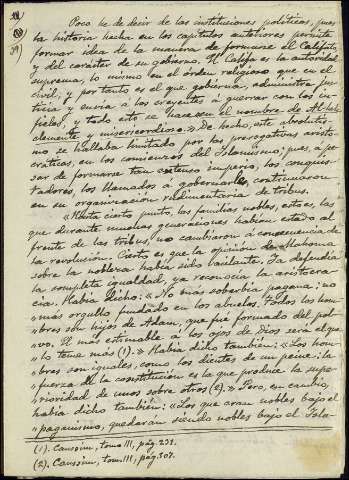 Poco he de decir de las instituciones políticas, pues
la historia hecha en los capítulos anteriores permite
formar idea de la manera de formarse el Califato
y del carácter de su gobierno. El Califa es la autoridad
suprema, lo mismo en el órden religioso que en el
civil; y por tanto es el que gobierna, administra jus-
ticia y envía a los creyentes á guerrear con los in-
fieles, y todo esto se hace en el nombre de Al-lah
clemente y misericordioso. De hecho, este absolutis-
mo se hallaba limitado por las prerogativas aristo-
cráticas, en los comienzos del Islamismo; pues, á pe-
sar de formarse tan extenso imperio, los conquis-
tadores, los llamados á gobernarle, continuaron
en su organización rudimentaria de tribus.
"Hasta cierto punto, las familias nobles, esto es, las
que durante muchas generaciones habían estado al
frente de las tribus, no cambiaron á consecuencia de
la revolución. Cierto es que la opinión de Mahoma
sobre la nobleza había sido vacilante. Ya defendía
la completa igualdad, ya reconocía la aristocra-
cia. Había dicho: «No más soberbia pagana; no
"más orgullo fundado en los abuelos. Todos los hom-
"bres son hijos de Adan, que fué formado del pol-
"vo. El más estimable á los ojos de Dios será el que
"lo tema más (1).» Había dicho también: «Los hom-
"bres son iguales, como los dientes de un peine: la
"fuerza de la constitución es la que produce la supe-
"rioridad de unos sobre otros (2).» Pero, en cambio,
había dicho también: «Los que eran nobles bajo el
"paganismo, quedarán siendo nobles bajo el Isla-
(1). Caussin, tomo III, pág. 231.
(2). Caussin, tom. III, pág. 507.